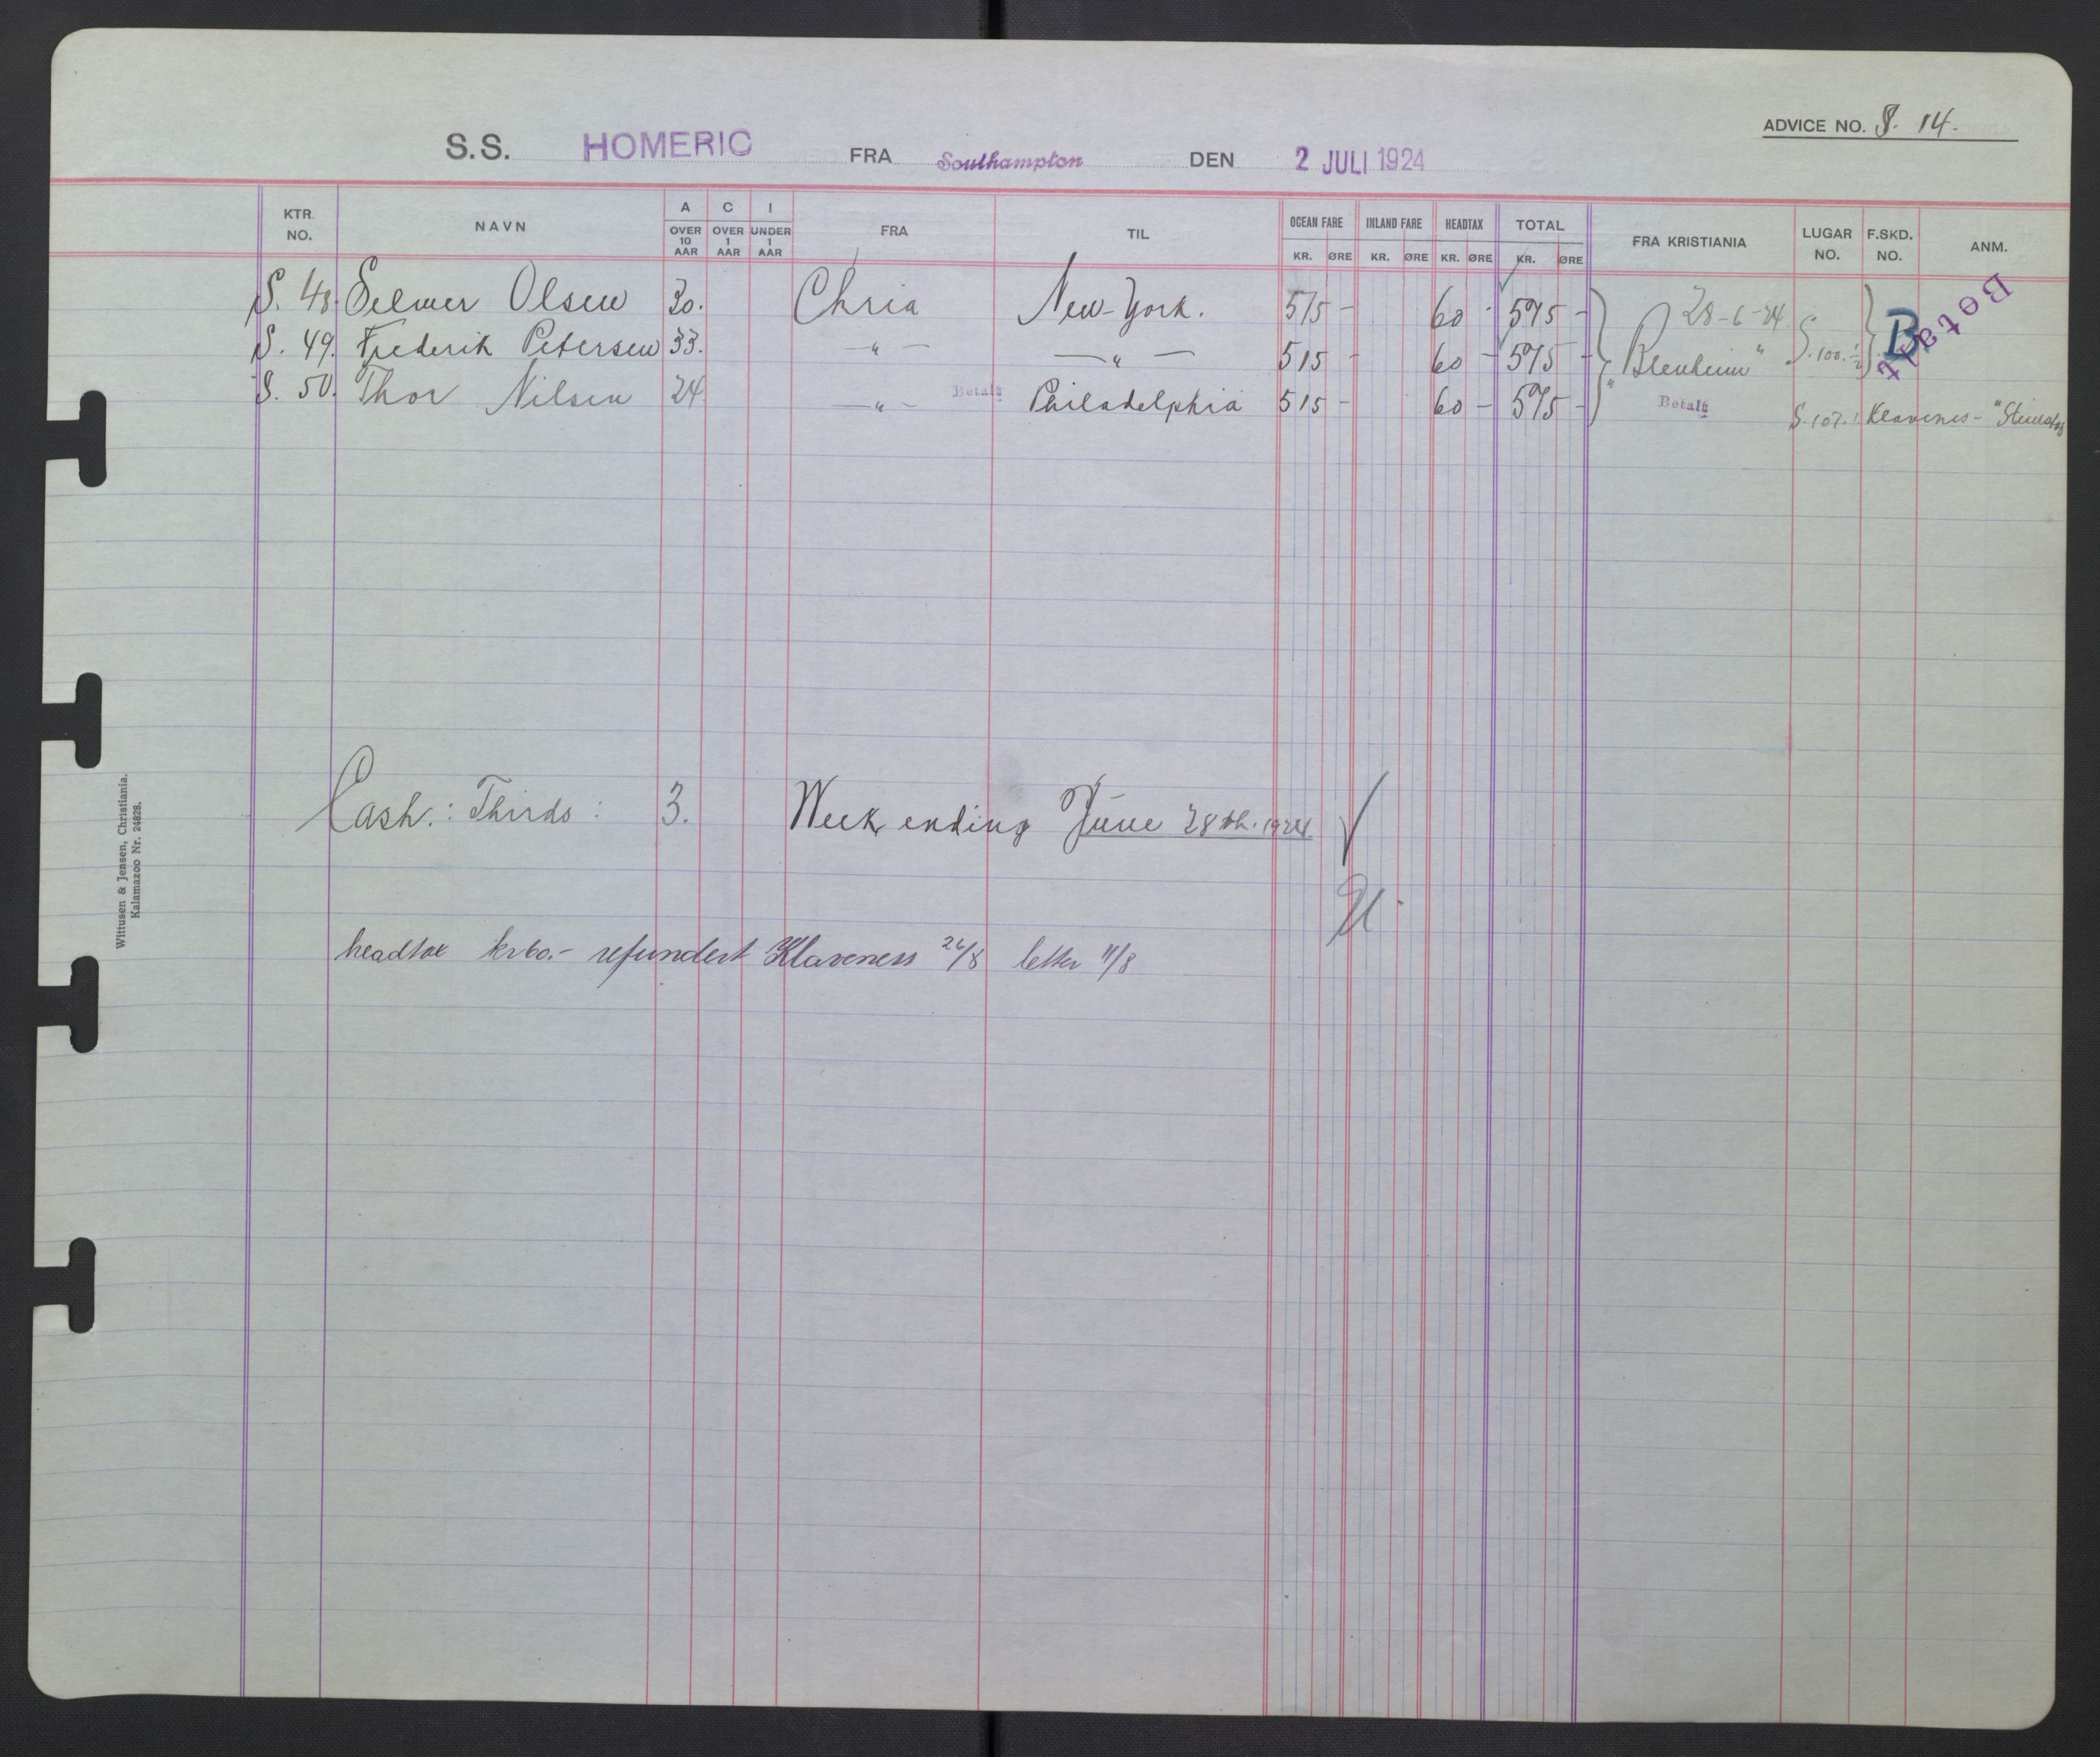 ADVICE NO. S. 14.
S.S. HOMERIC FRA Southampton DEN 2 JULI 1924
KTR. NO. NAVN A OVER 10 AAR C OVER 1 AAR I UNDER 1 AAR FRA TIL OCEAN FARE KR. ØRE INLAND FARE KR. ØRE HEADTAX KR. ØRE TOTAL KR. ØRE FRA KRISTIANIA LUGAR NO. F.SKD. NO. ANM.
S. 48. Selmer Olsen 30. Chria New-York. 515 - 60 - 575 - 28-6-24 B Betalt
S. 49. Frederik Petersen 33. —"— —"— 515 - 60 - 575 - "Blenheim" S.100. 1/2
S. 50. Thor Nilsen 24 —"— Betalt Philadelphia 515 - 60 - 575 - Betalt S.107. Klavenes-
Cash.: Thirds: 3. Week ending June 28th. 1924
headtax kr 60.- refundert Klaveness 26/8 letter 11/8
Wittusen & Jensen, Christiania.
Kalamazoo Nr. 24828.